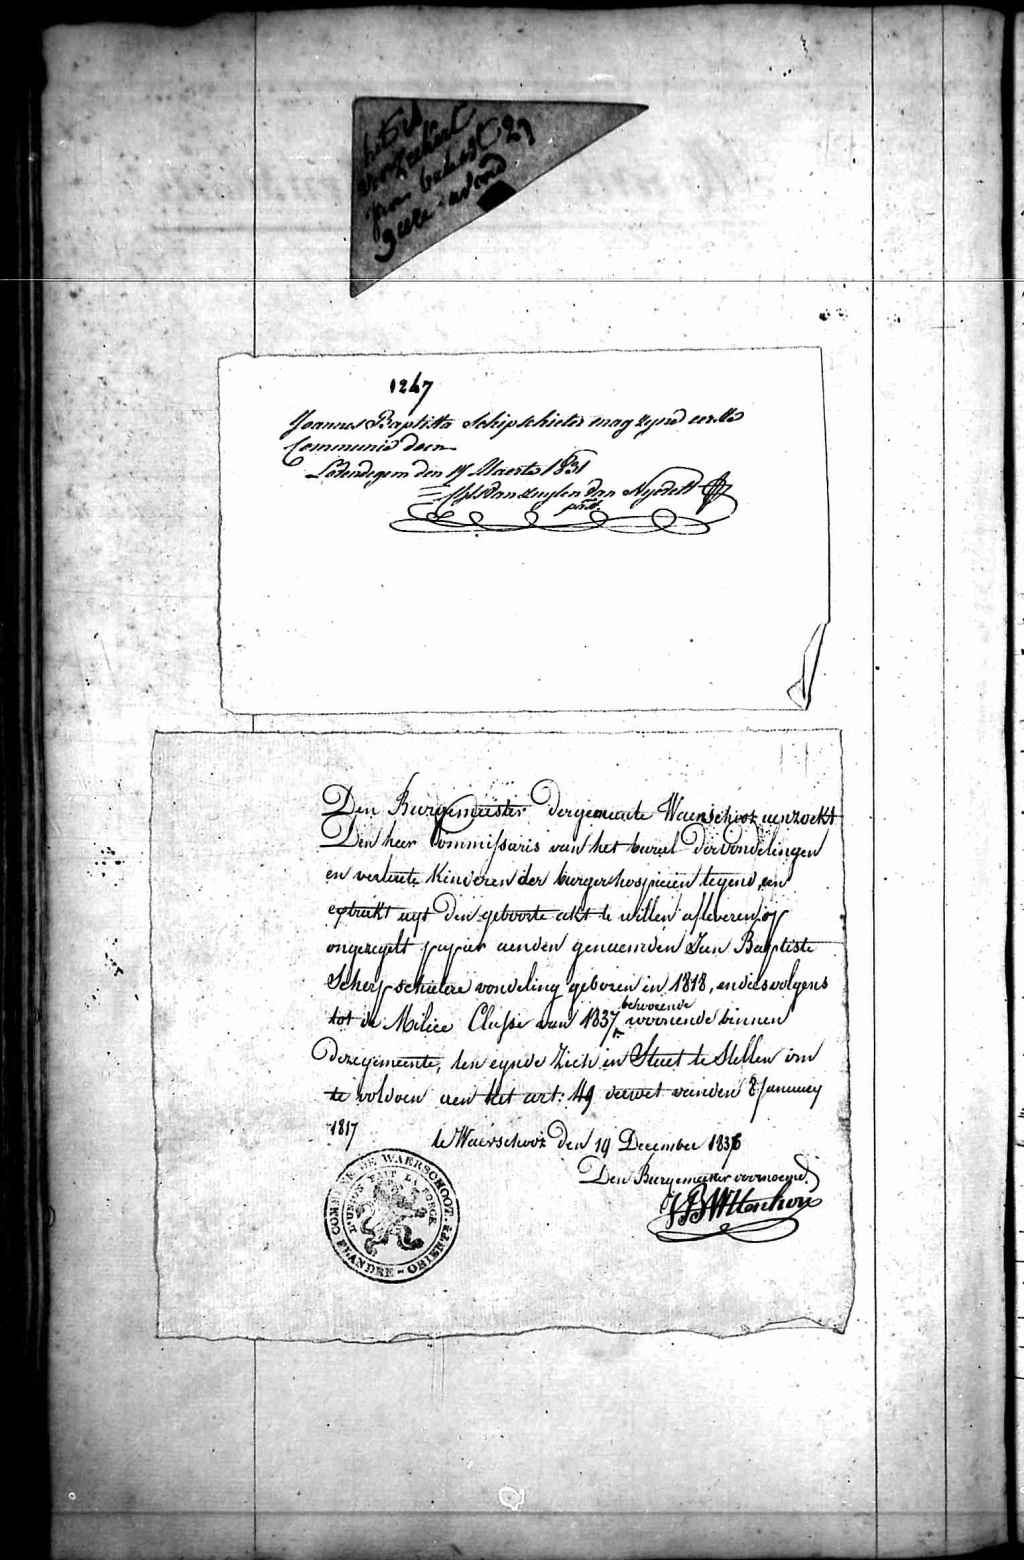 1247
Joannes Baptista Schipschieter mag zijne eerste
Communie doen
Lovendegem den 17 Maerte 1831
Den Burgemeester der gemeente Waerschoot aenzoekt
Den heer Commissaris van het bureel der vondelingen
en verlaete Kinderen der burger hospicien tegend, een
extrakt uyt den geboorte akt te willen afleveren op
ongezegelt papier aenden genaemden Jan Baptiste
Scherpschietere vondeling geboren in 1818, en diesvolgens
tot de Milice Classe van 1837 behoorende woonende binnen
deze gemeente, ten eynde zich in Staet te Stellen om
te voldoen aen het art: 49 der wet vanden 8 January
1817
te Waerschoot Den 19 December 1836
Den Burgemeester voornoemd
COMMUNE DE WAERSCHOOT
L'UNION FAIT LA FORCE
FLANDRE-ORIENTE